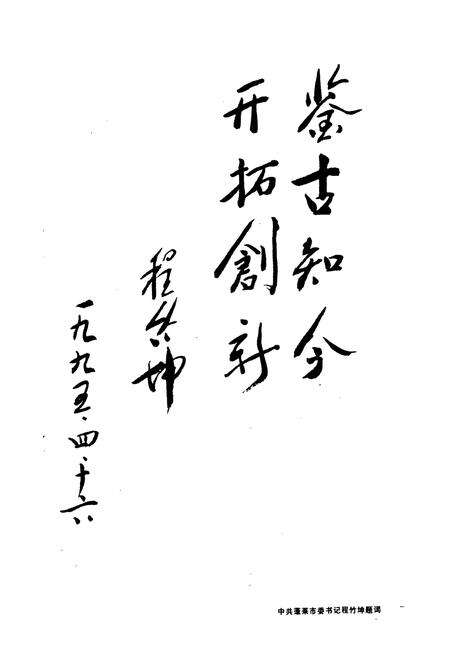 鉴古知今
开拓創新
程竹坤
一九九五·四·十六
中共蓬莱市委书记程竹坤题词